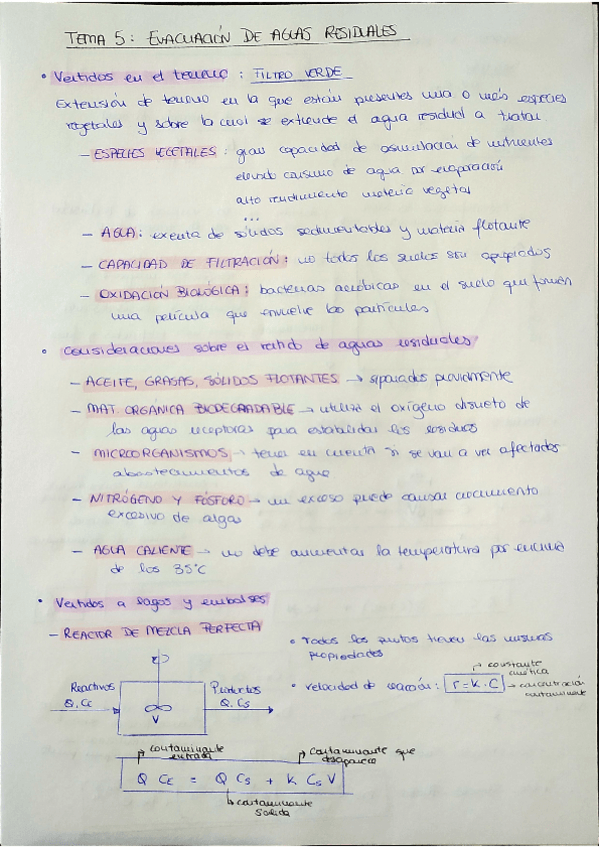 TEMA 5: EVACUACIÓN DE AGUAS RESIDUALES
• Vertidos en el terreno: FILTRO VERDE
Extensión de terreno en la que están presentes una o más especies
vegetales y sobre la cual se extiende el agua residual a tratar
- ESPECIES VEGETALES: gran capacidad de asimilación de nutrientes
elevado consumo de agua por evaporación
alto rendimiento materia vegetal
...
- AGUA: exenta de sólidos sedimentables y materia flotante
- CAPACIDAD DE FILTRACIÓN: no todos los suelos son apropiados
- OXIDACIÓN BIOLÓGICA: bacterias aeróbicas en el suelo que forman
una película que envuelve las partículas
• Consideraciones sobre el vertido de aguas residuales
- ACEITE, GRASAS, SÓLIDOS FLOTANTES → separados previamente
- MAT. ORGÁNICA BIODEGRADABLE → utiliza el oxígeno disuelto de
las aguas receptoras para estabilizar los residuos
- MICROORGANISMOS → tener en cuenta si se van a ver afectados
abastecimientos de agua
- NITRÓGENO Y FÓSFORO → un exceso puede causar crecimiento
excesivo de algas
- AGUA CALIENTE → no debe aumentar la temperatura por encima
de los 35°C
• Vertidos a lagos y embalses
- REACTOR DE MEZCLA PERFECTA
• Todos los puntos tienen las mismas
propiedades
Reactivos
Q, CE
V
Productos
Q, CS
• velocidad de reacción: r = K · C
constante
cinética
concentración
contaminante
contaminante
entrada
contaminante que
desaparece
Q CE = Q CS + K CS V
contaminante
salida